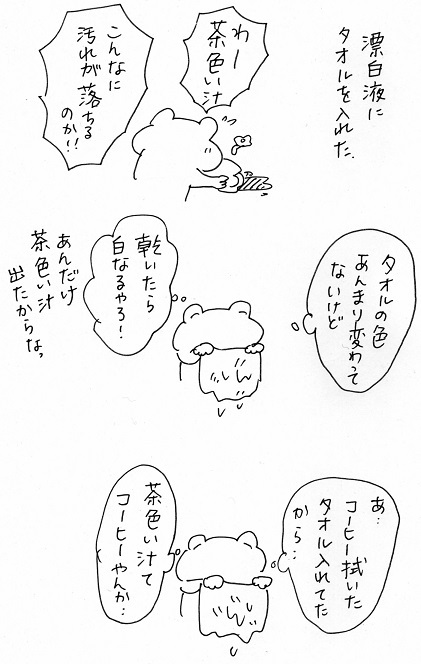 漂白液に
タオルを入れた.
わー
茶色い汁
こんなに
汚れが落ちる
のか!!
タオルの色
あんまり変わって
ないけど
乾いたら
白なるやろ!
あんだけ
茶色い汁
出たからなっ
じんん
あ…
コーヒー拭いた
タオル入れてた
から…
茶色い汁て
コーヒーやんか…